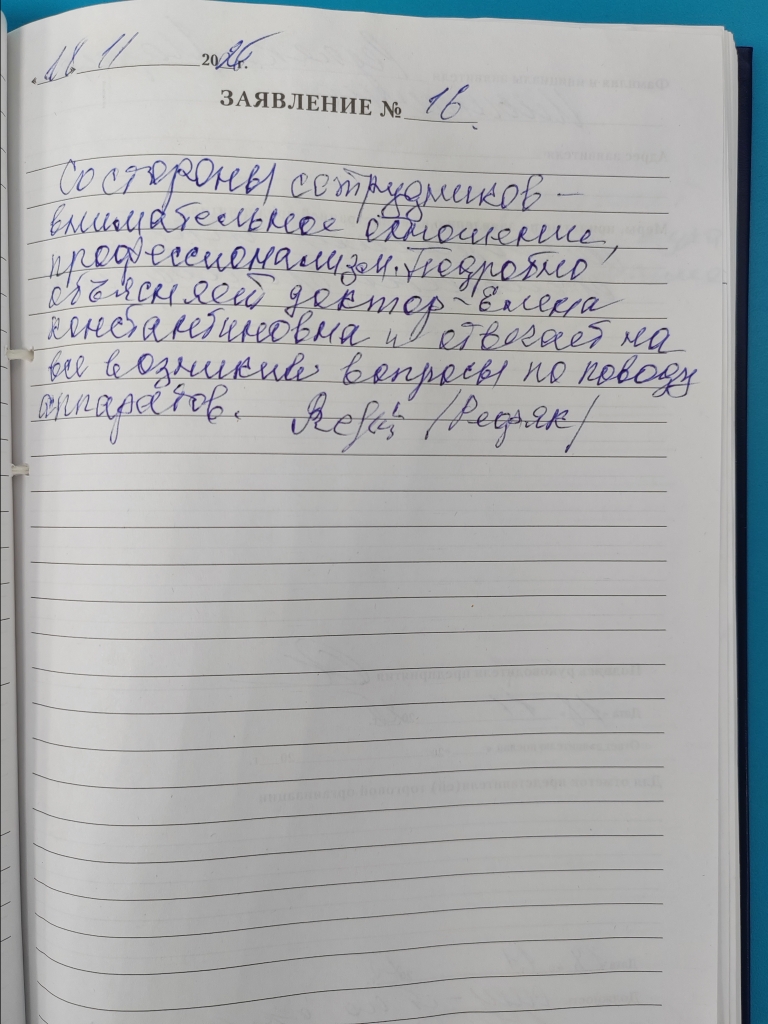 «18» 11 2025г.
ЗАЯВЛЕНИЕ № 16.
Со стороны сотрудников –
внимательное отношение,
профессионализм. Подробно
объясняет доктор – Елена
Константиновна и отвечает на
все возникшие вопросы по поводу
аппаратов. /Редзяк/